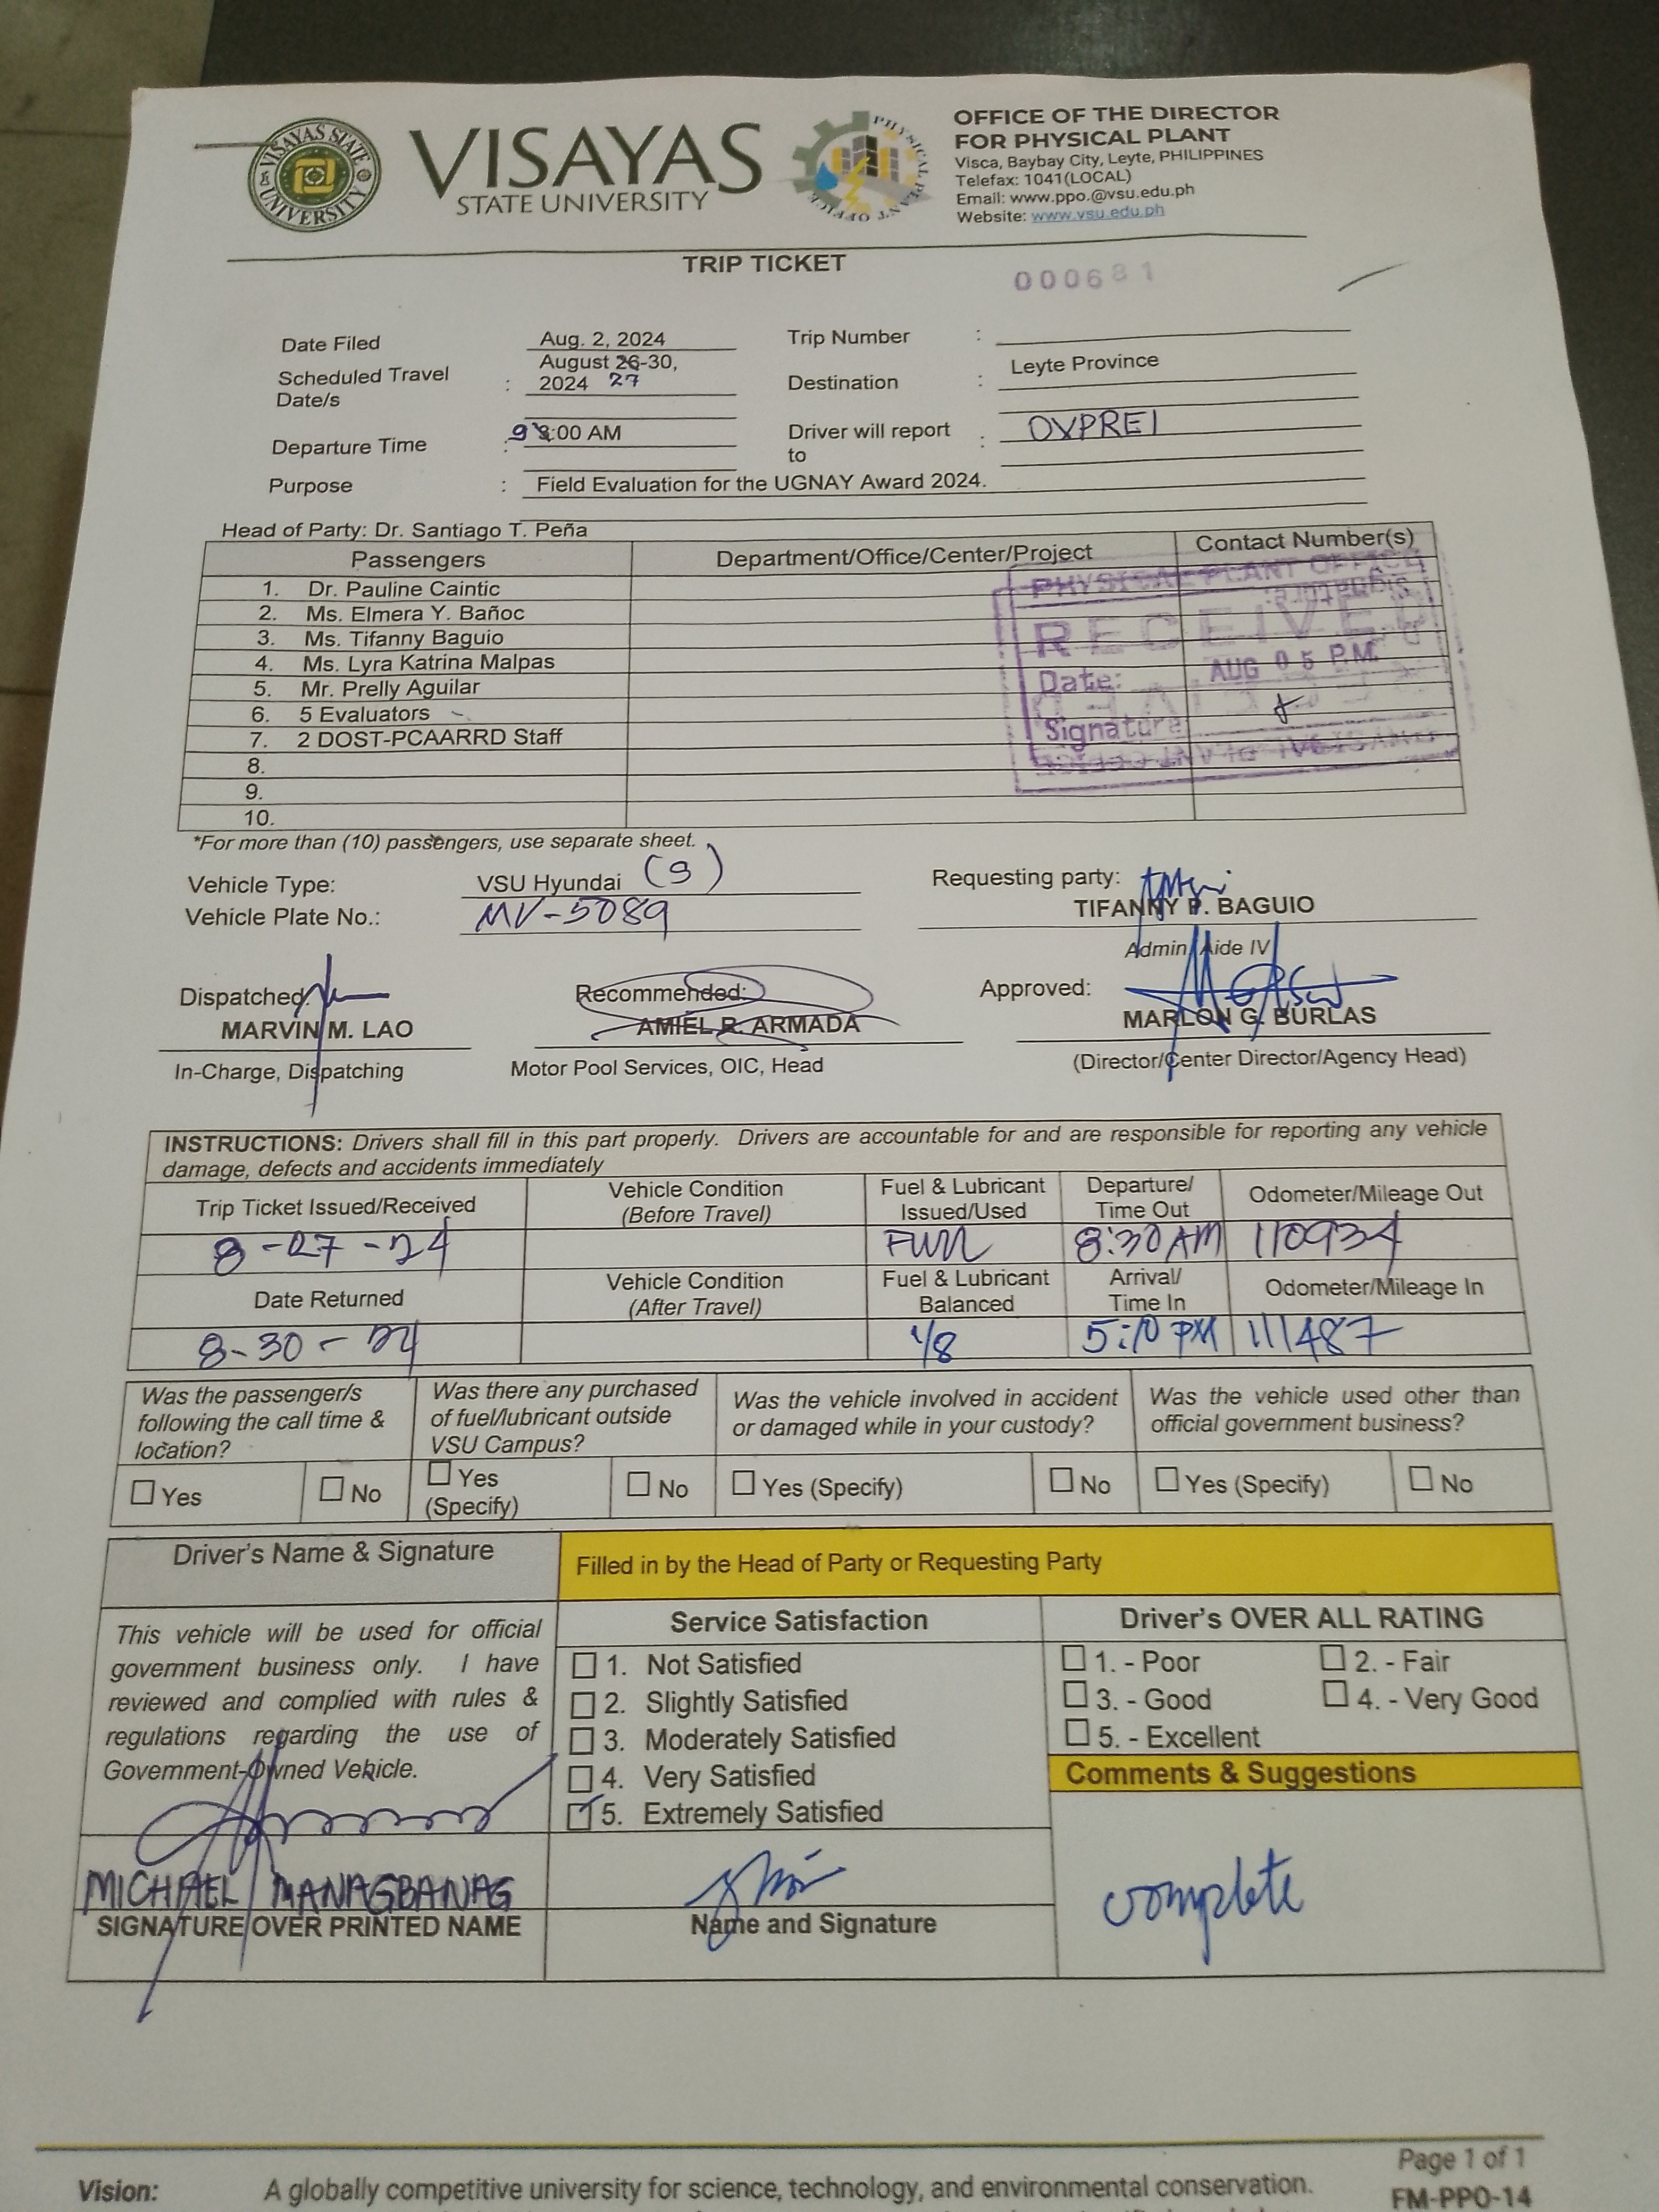 VISAYAS STATE UNIVERSITY
VISAYAS
STATE UNIVERSITY
PHYSICAL PLANT OFFICE
OFFICE OF THE DIRECTOR
FOR PHYSICAL PLANT
Visca, Baybay City, Leyte, PHILIPPINES
Telefax: 1041(LOCAL)
Email: www.ppo.@vsu.edu.ph
Website: www.vsu.edu.ph
TRIP TICKET
000681
Date Filed Aug. 2, 2024 Trip Number :
Scheduled Travel Date/s : August 26-30, 2024 27 Destination : Leyte Province
Departure Time : 9 8:00 AM Driver will report to : OVPREI
Purpose : Field Evaluation for the UGNAY Award 2024.
Head of Party: Dr. Santiago T. Peña
Passengers Department/Office/Center/Project Contact Number(s)
1. Dr. Pauline Caintic
2. Ms. Elmera Y. Bañoc
3. Ms. Tifanny Baguio
4. Ms. Lyra Katrina Malpas
5. Mr. Prelly Aguilar
6. 5 Evaluators
7. 2 DOST-PCAARRD Staff
8.
9.
10.
PHYSICAL PLANT OFFICE
RECEIVED
Date: AUG 05 P.M.
Signature
*For more than (10) passengers, use separate sheet.
Vehicle Type: VSU Hyundai (S) Requesting party:
Vehicle Plate No.: MV-5089 TIFANNY P. BAGUIO
Admin Aide IV
Dispatched: Recommended: Approved:
MARVIN M. LAO AMIEL R. ARMADA MARLON G. BURLAS
In-Charge, Dispatching Motor Pool Services, OIC, Head (Director/Center Director/Agency Head)
INSTRUCTIONS: Drivers shall fill in this part properly. Drivers are accountable for and are responsible for reporting any vehicle
damage, defects and accidents immediately
Trip Ticket Issued/Received Vehicle Condition (Before Travel) Fuel & Lubricant Issued/Used Departure/ Time Out Odometer/Mileage Out
8-27-24 Full 8:30 AM 110934
Date Returned Vehicle Condition (After Travel) Fuel & Lubricant Balanced Arrival/ Time In Odometer/Mileage In
8-30-24 1/8 5:10 PM 111487
Was the passenger/s following the call time & location? Was there any purchased of fuel/lubricant outside VSU Campus? Was the vehicle involved in accident or damaged while in your custody? Was the vehicle used other than official government business?
Yes No Yes (Specify) No Yes (Specify) No Yes (Specify) No
Driver's Name & Signature Filled in by the Head of Party or Requesting Party
This vehicle will be used for official
government business only. I have
reviewed and complied with rules &
regulations regarding the use of
Government-Owned Vehicle.
MICHAEL MANAGBANAG
SIGNATURE OVER PRINTED NAME
Service Satisfaction
1. Not Satisfied
2. Slightly Satisfied
3. Moderately Satisfied
4. Very Satisfied
5. Extremely Satisfied
Name and Signature
Driver's OVER ALL RATING
1. - Poor 2. - Fair
3. - Good 4. - Very Good
5. - Excellent
Comments & Suggestions
complete
Page 1 of 1
Vision: A globally competitive university for science, technology, and environmental conservation.
FM-PPO-14